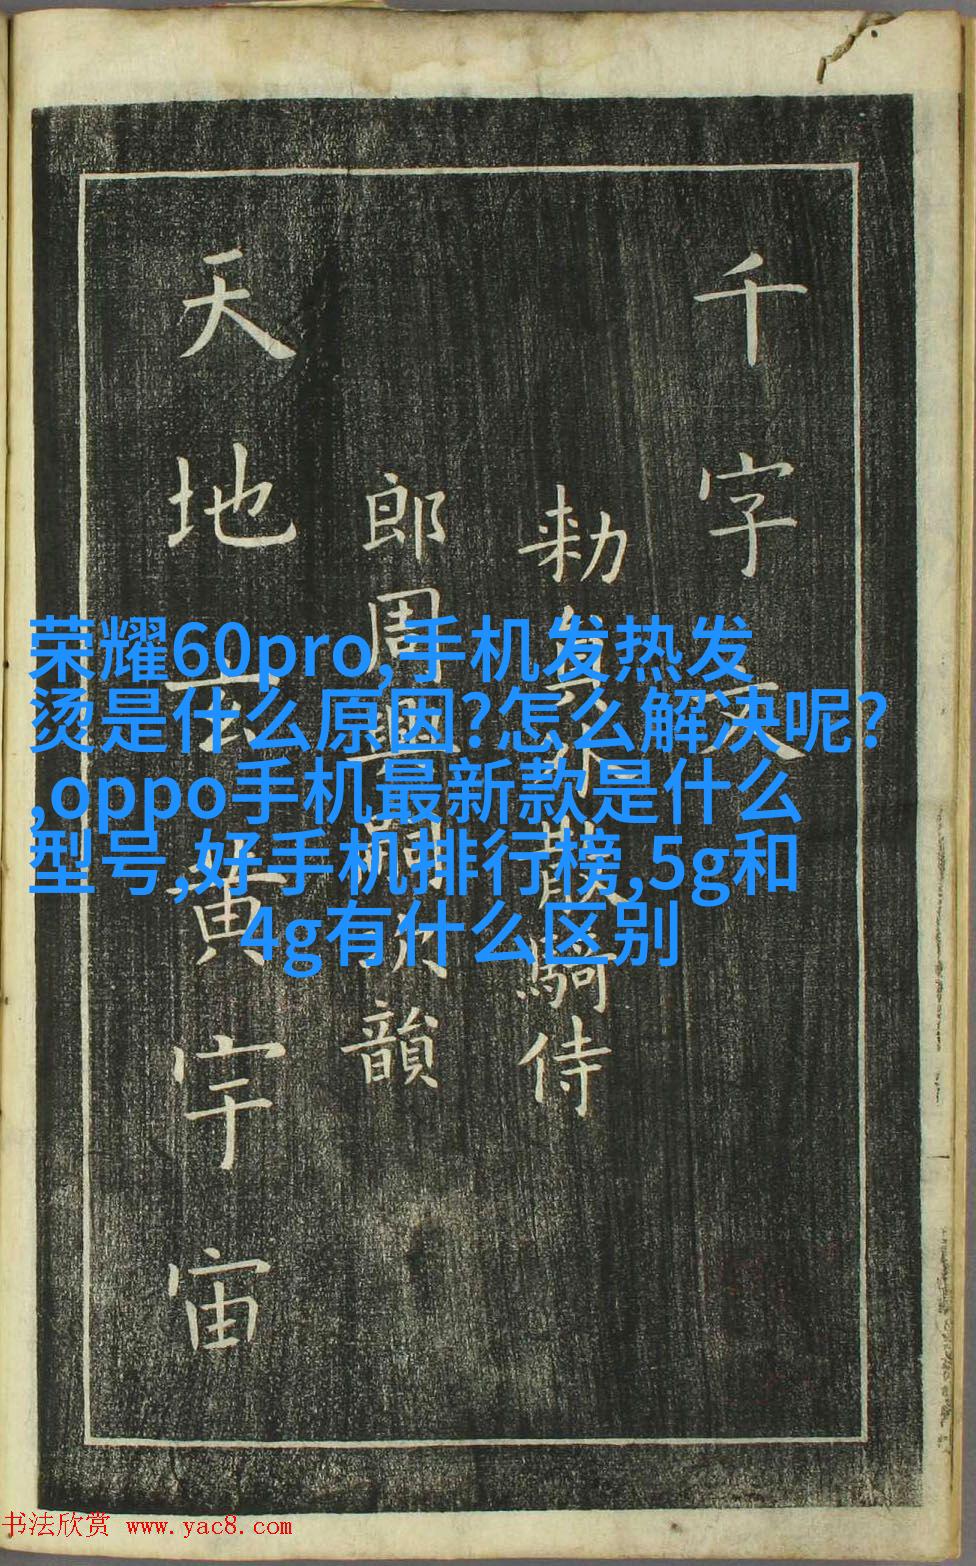 千字文
勑員外散騎侍
郎周興嗣次韻
天地玄黃宇宙
荣耀60pro,手机发热发
烫是什么原因?怎么解决呢?
,oppo手机最新款是什么
型号,好手机排行榜,5g和
4g有什么区别
书法欣赏 www.yac8.com